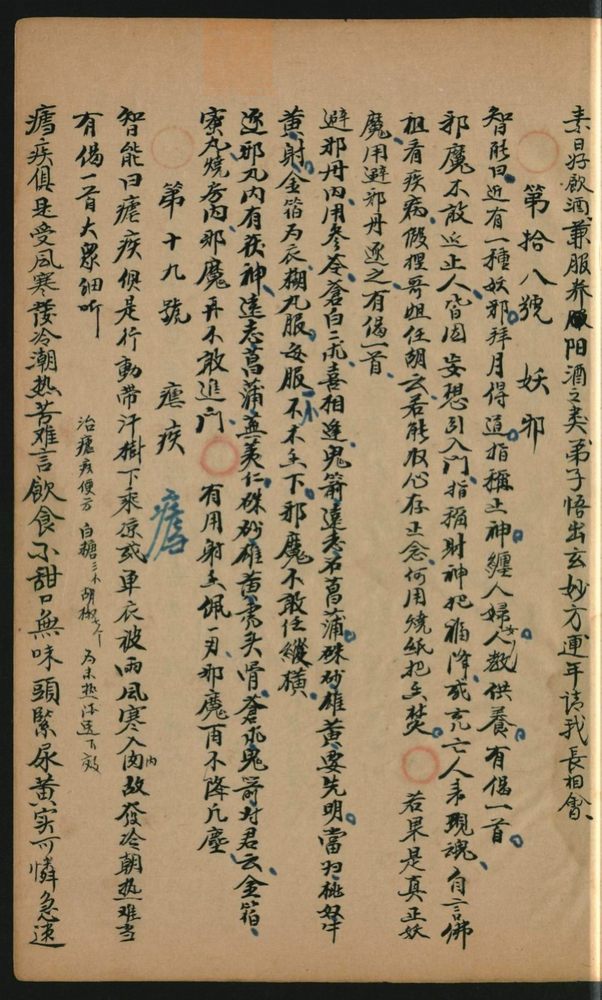 素日好飲酒兼服养陽酒之类弟子悟出玄妙方連年請我長相會
第拾八號 妖邪
智能曰近有一種妖邪拜月得道指稱正神纏人婦女教人供養有偈一首
邪魔不敢近正人皆因妄想引入門指稱財神把福降或充亡人来現魂自言佛
祖看疾病假捏哥姐任胡云若能收心存正念何用燒紙把香焚 若果是真正妖
魔用避邪丹逐之有偈一首
避邪丹内用參苓蒼白二朮喜相逢鬼箭遠志石菖蒲硃砂雄黄要先明當归桃奴牛
黄射金箔为衣糊丸服每服一小不木香下邪魔不敢任縱横
逐邪丸内有茯神遠志菖蒲蕪荑仁硃砂雄黄虎头骨蒼朮鬼箭对君云金箔
蜜丸燒房内邪魔再不敢進門 有用射香佩一刃邪魔再不降凡塵
第十九號 瘧疾 瘧
智能曰瘧疾俱是行動帶汗樹下乘凉或单衣被雨風寒入肉内故發冷朝热难当
有偈一首大眾细听
治瘧疾便方 白糖三不 胡椒 个 为末热酒送下效
瘧疾俱是受風寒發冷潮热苦难言飲食不甜口無味頭緊尿黄实可憐急速